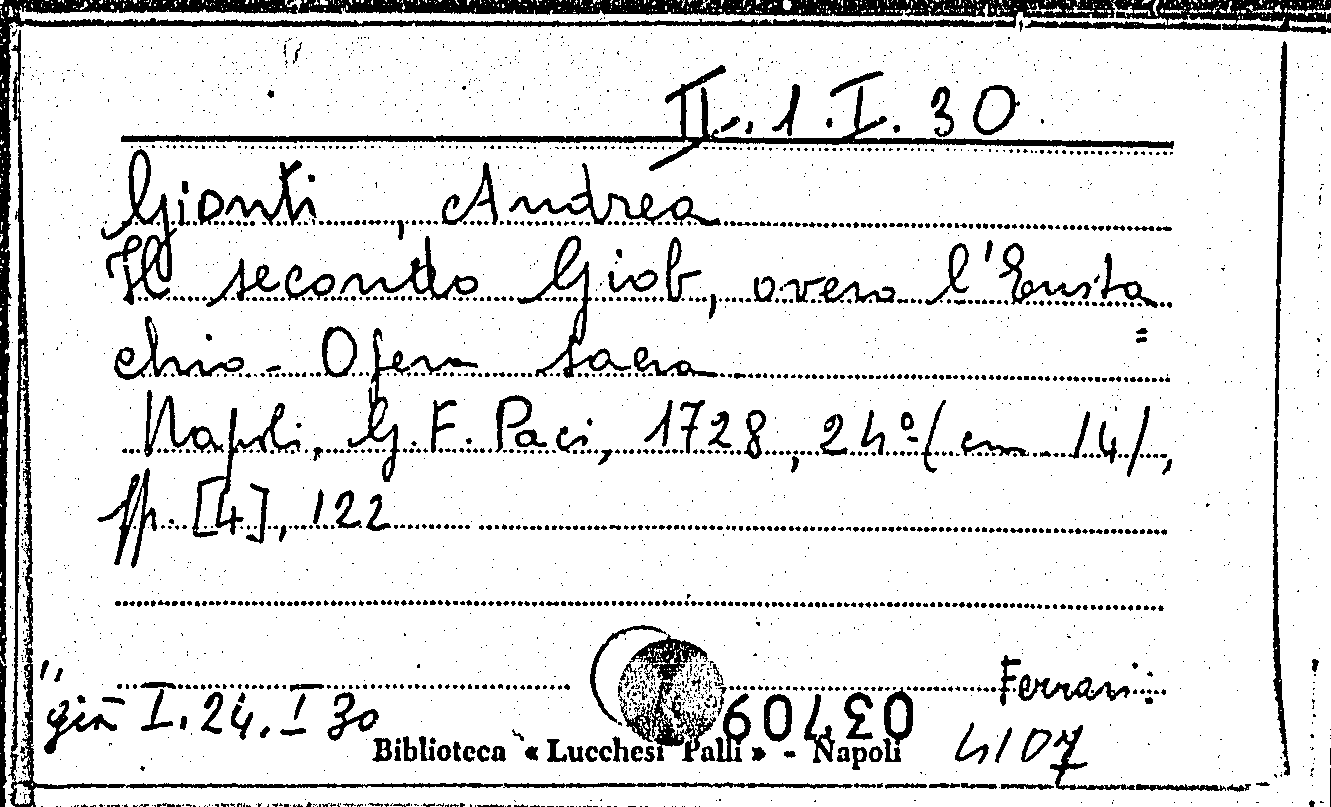 II.1.I.30
Gionti, Andrea
Il secondo Giob, overo l'Eusta=
chio - Opera sacra.
Napoli, G.F. Paci, 1728, 24º (cm 14),
pp. [4], 122
già I.24.I 30
Ferrari:
4107
Biblioteca « Lucchesi Palli » - Napoli